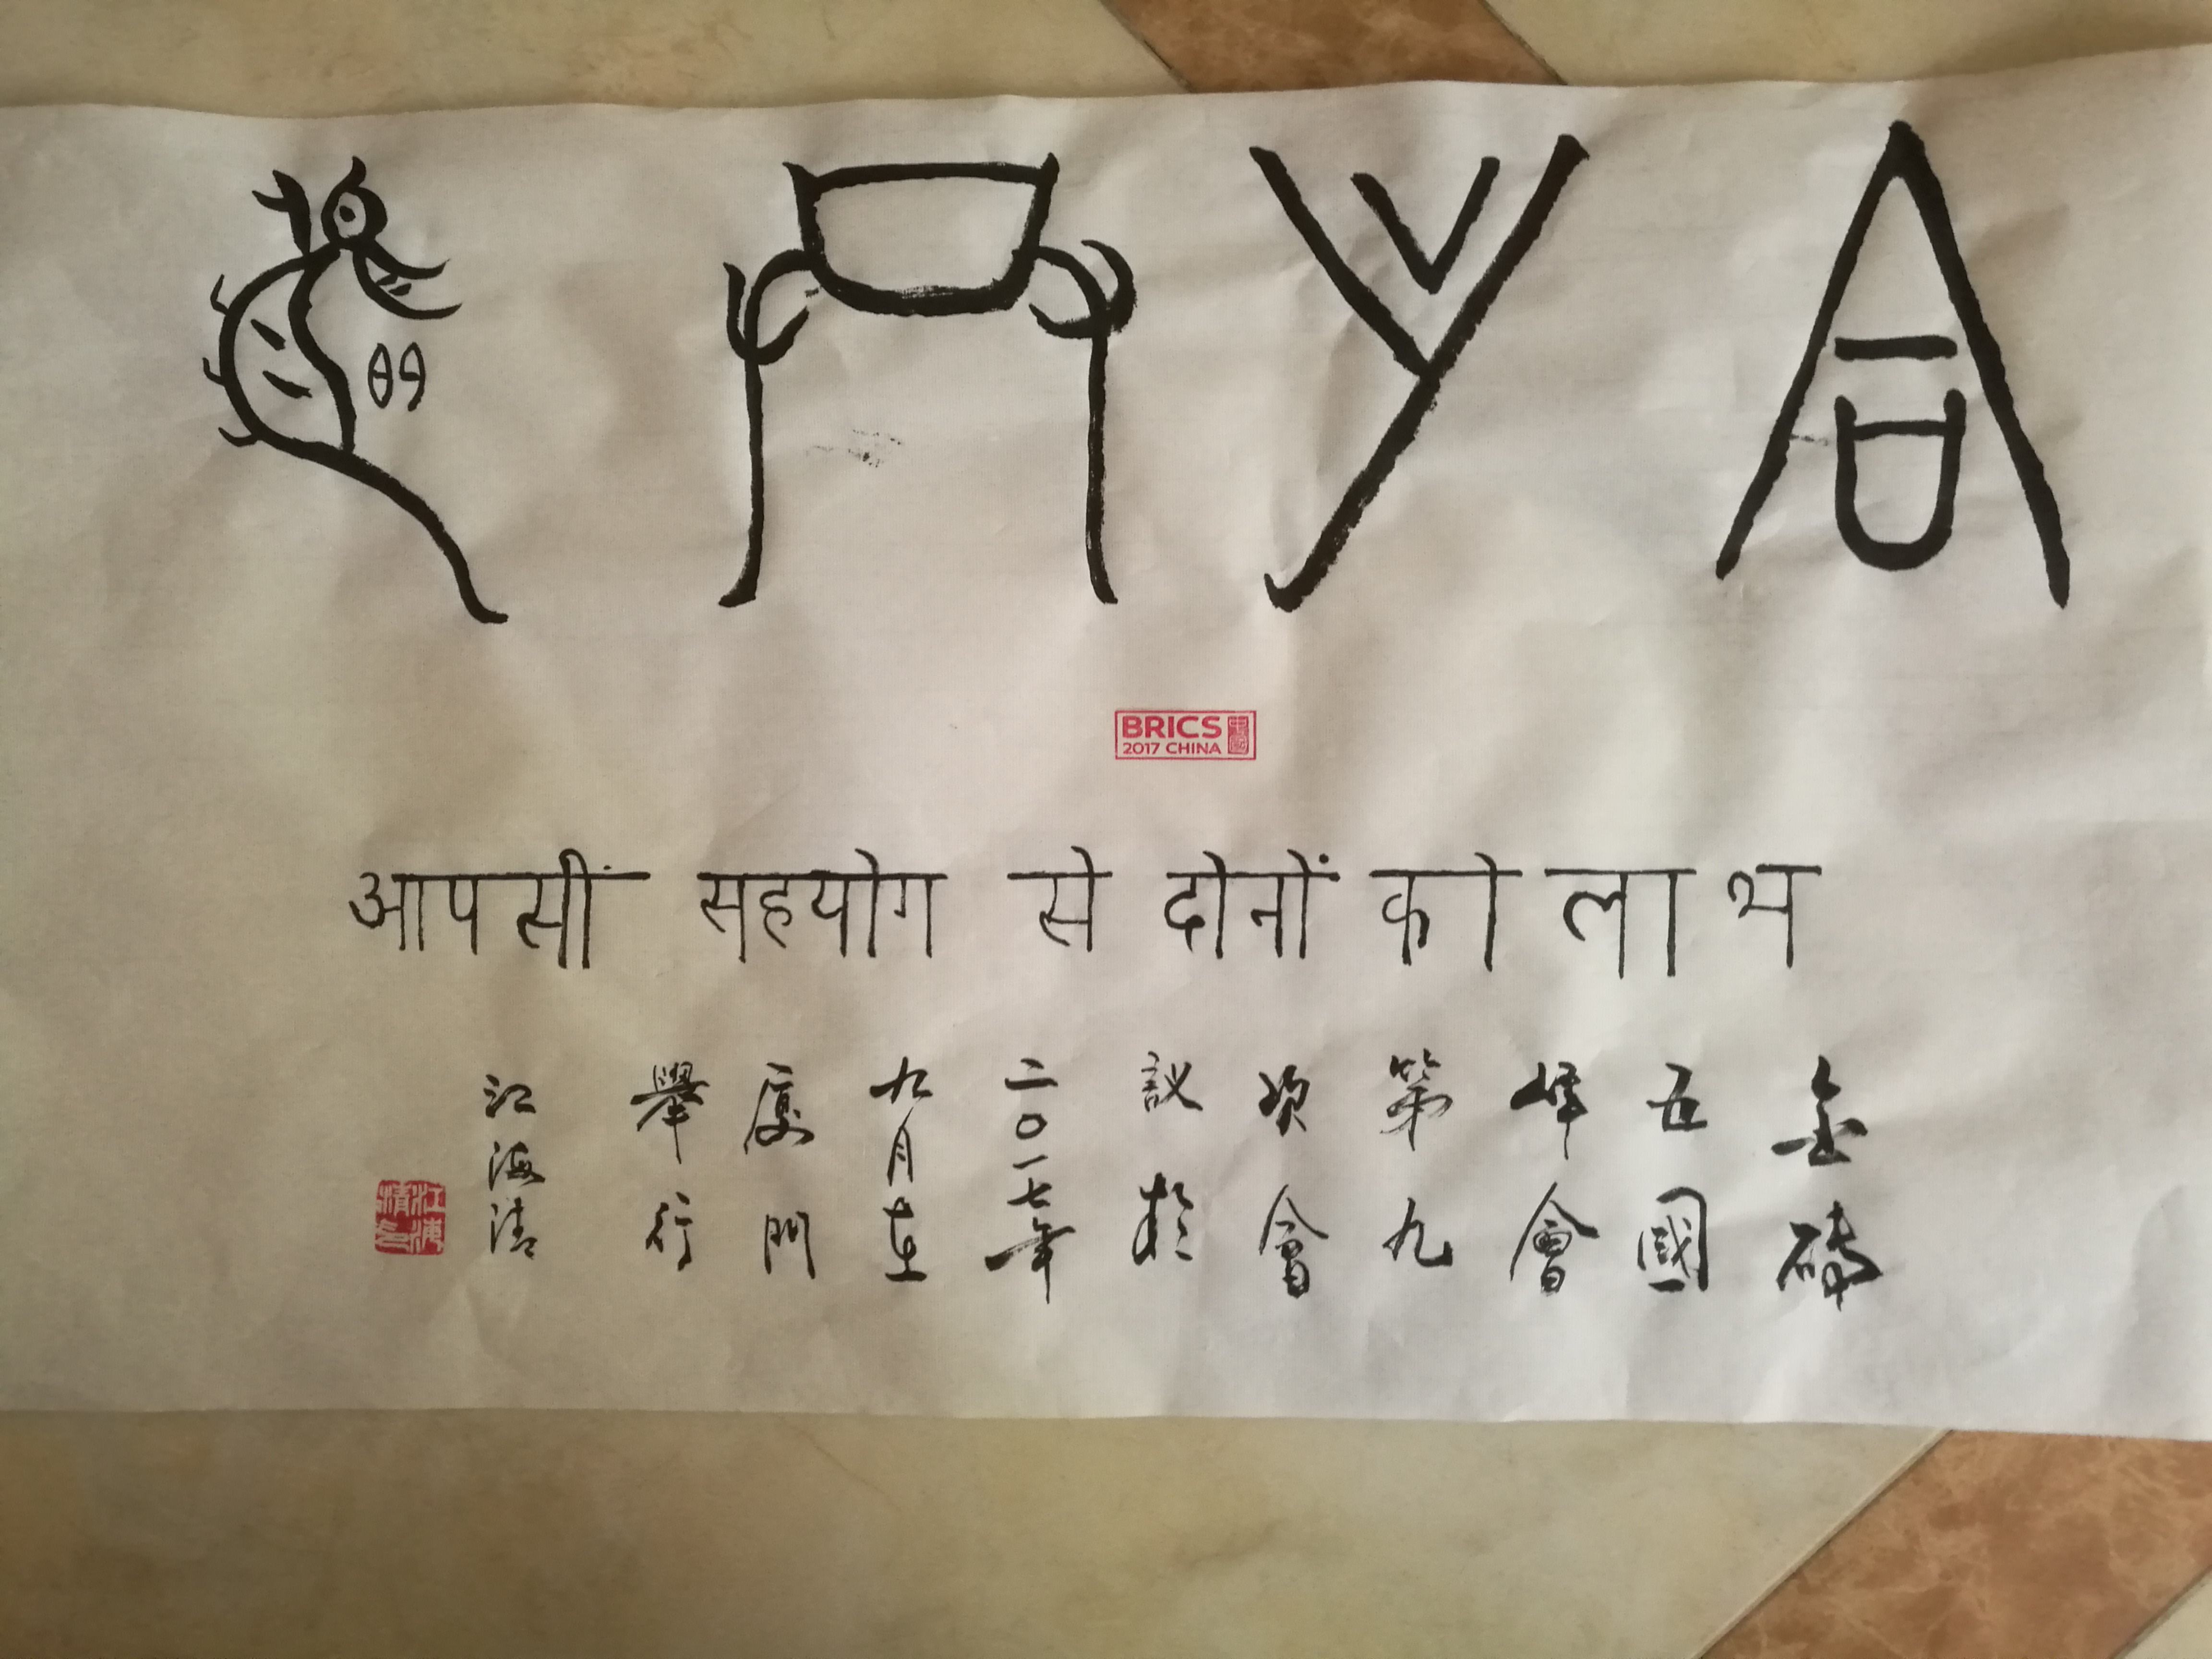 合作共贏
BRICS
2017 CHINA
中國
आपसीं सहयोग से दोनों का लाभ
金磚
五國
峰會
第九
次會
議於
二〇一七年
九月在
廈門
舉行
江海清
江海清印